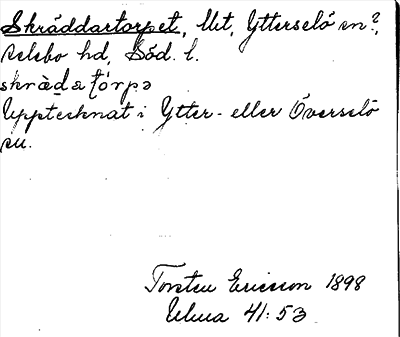 Skräddartorpet, lht, Ytterselö sn?,
Selebo hd, Söd. l.
skrȁdatórpə
Upptecknat i Ytter- eller Överselö
sn.
Torsten Ericsson 1898
Ulma 41:53